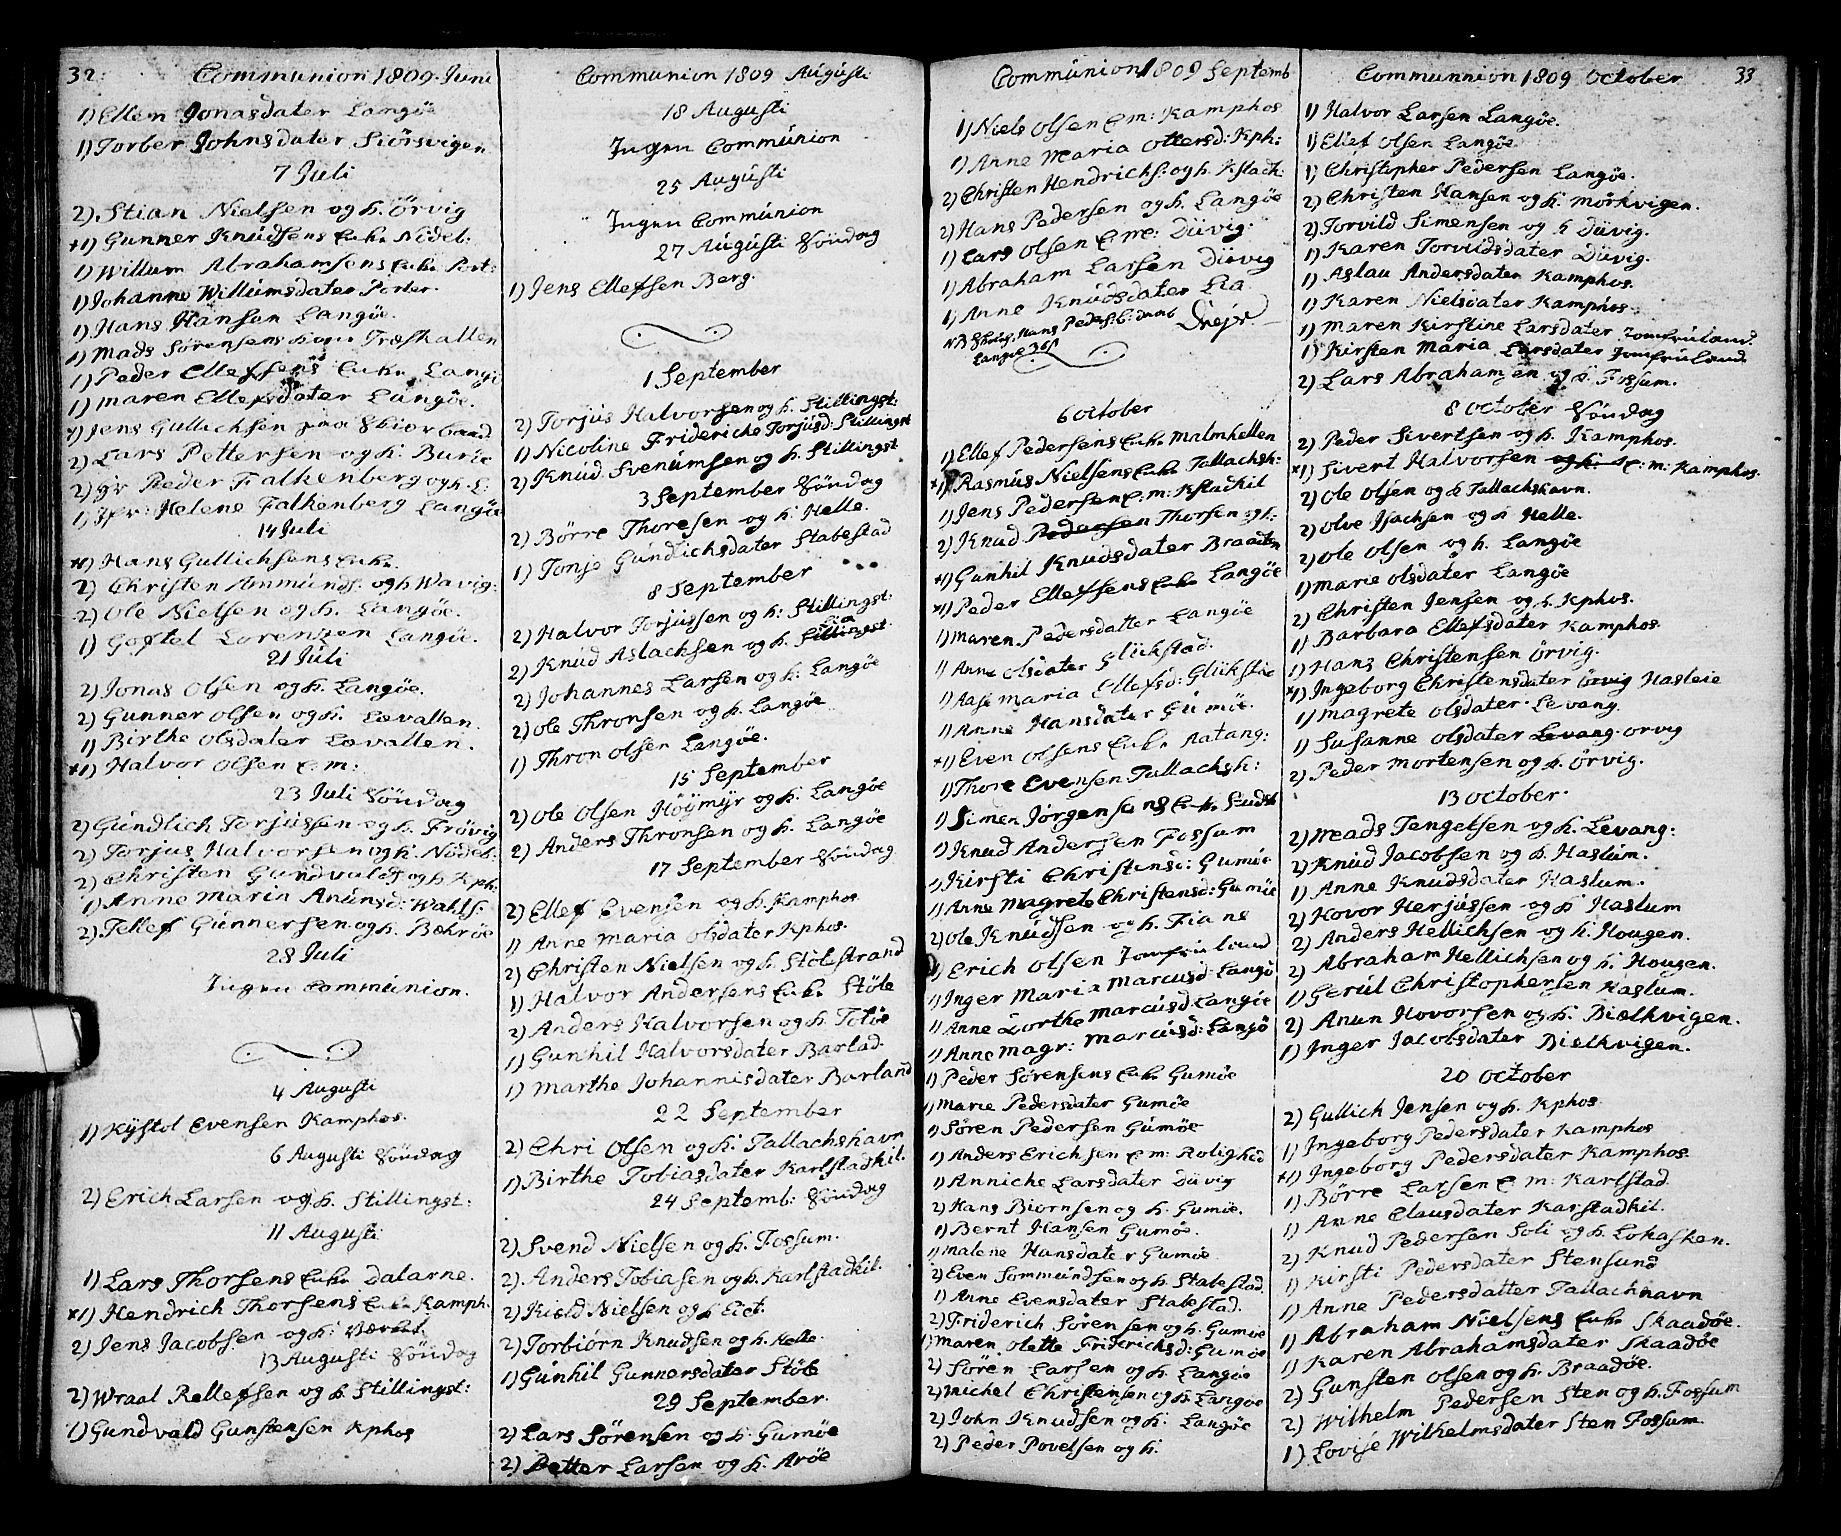 32.
Communion 1809. Juni
1) Ellen Jonasdater Langöe
1) Torber Johnsdater Siörsvigen
7 Juli
2). Stian Nielsen og h. Örvig
+1) Gunner Knudsens Enke Nideb:
1) Willum Abrahamsens Enke Port:
1) Johanne Willumsdater Porter.
1) Hans Hansen Langöe.
1) Mads Sörensens kone Træskallen
1) Peder Ellefsens Enke Langö
1) Maren Ellefsdater Langöe.
1) Jens Gullichsen paa
2) Lars Pettersen og h. Buröe
2) Hr Peder Falkenberg og h. L:
1) Jfr: Helene Falkenberg Langöe
14 Juli
*1) Hans Gullichsens Enke.
2) Christen Ammunds. og h Wavig:
2) Ole Nielsen og h. Langöe.
1) Goftel Lorentzen Langöe.
21 Juli
2) Jonas Olsen og h. Langöe.
2) Gunner Olsen og h. Løvallen.
1) Birthe Olsdater Løvallen.
*1) Halvor Olsen E. m:
23 Juli Söndag
2) Gundlich Torjussen og h. Frövig
2) Torjus Halvorsen og h. Nideb:
2) Christen Gundvalds og h. Kph:
1) Anne Maria Anunsd: Wahls:
2) Tellef Gunnersen og h. Bærøe
28 Juli
Ingen Communion.
4 Augusti
1) Kystol Evensen Kamphos.
6 Augusti Söndag
2) Erich Larsen og h. Stillingst:
11 Augusti
1) Lars Thorsens Enke Dalarne.
*1) Hendrich Thorsens Enke Kamph.
2) Jens Jacobsen og h: Værket.
13 Augusti Söndag
2) Wraal Rellefsen og h. Stillingst:
1) Gundvald Gunstensen Kphos
Communion 1809 Augusti
18 Augusti
Ingen Communion
25 Augusti
Ingen Communion
27 Augusti Söndag
1) Jens Ellefsen Berg.
1 September
2) Torjus Halvorsen og h. Stillingst:
1) Nicoline Friderike Torjusd: Stillingst
2) Knud Svenumsen og h. Stillingst
3 September Söndag
2) Börre Thoresen og h. Helle.
1) Tonje Gundlichsdater Stabestad
8 September
2) Halvor Torjussen og h: Stillingst:
2) Knud Aslachsen og h. Stillingst.
2) Johannes Larsen og h: Langöe
2) Ole Thronsen og h. Langöe
1) Thron Olsen Langöe.
15 September
2) Ole Olsen Höymyr og h. Langöe
2) Anders Thronsen og h. Langöe
17 September Söndag
2) Ellef Evensen og h. Kamphos
1) Anne Maria Olsdater Kphos.
2) Christen Nielsen og h. Stölestrand
1) Halvor Andersens Enke Støle
2) Anders Halvorsen og h. Totöe
1) Gunhil Halvorsdater Barlad.
1) Marthe Johannisdater Barland
22 September
2) Chri Olsen og h: Tallachshavn
1) Birthe Tobiasdater Karlstadkil.
24 Septemb: Söndag
2). Svend Nielsen og h. Fossum.
2). Anders Tobiasen og h. Karlstadkil.
2) Kield Nielsen og h Eiet.
2) Torbiörn Knudsen og h. Helle.
1) Gunhil Gunnersdater Stöle
29 September.
2) Lars Sörensen og h. Gumöe
2) Petter Larsen og h. Aröe
Communion 1809 Septemb
1) Niels Olsen E. m: Kamphos
1) Anne Maria Ottersd: Kph:
2) Christen Hendrichs: og h. Kstadk:
2) Hans Pedersen og h. Langöe
1) Lars Olsen E. m: Düvig.
1) Abraham Larsen Düvig
1) Anne Knudsdater Lia
6 October
1) Ellef Pedersens Enke Malmhellen
*1) Rasmus Nielsens Enke Tallachsh:
1) Jens Pedersen E. m: Kstadkil
2) Knud Pedersen Thorsen og h:
*1) Gunhil Knudsdater Braaten
*1) Peder Ellefsens Enke Langöe
1) Maren Pedersdatter Langöe
1) Anne Olsdater Glükstad.
1) Aase Maria Ellefsd: Glükstad
1) Anne Hansdater Gumöe.
*1) Even Olsens Enke Aatang:
1) Thore Evensen Tallachsh:
1) Simen Jörgensens E. h.
1) Knud Andersen Fossum
1) Kirsti Christensd: Gumöe
1) Anne Magrete Christensd: Gumöe
2) Ole Knudsen og h. Fiane
1) Erich Olsen Jomfruland
1) Inger Maria Marcusd: Langö
1) Anne Dorthe Marcusd Langöe
1) Anne Magr: Marcusd: Langö
1) Peder Sörensens Enke Gumöe
1) Marie Pedersdater Gumöe
1) Sören Pedersen Gümöe
1) Anders Erichsen E m: Rolighed
1) Anniche Larsdater Düvig
2) Hans Biornsen og h. Gumöe.
1) Bernt Hansen Gumöe.
1) Malene Hansdater Gumöe
2) Even Sommundsen og h. Stabestad
1) Anne Evensdater Stabestad.
2) Friderich Sörensen og h. Gumöe
1) Maren Olette Friderichsd: Gumöe
2) Sören Larsen og h. Langöe
2) Michel Christensen og h. Langöe
2) John Knudsen og h. Langöe
2) Peder Povelsen og h.
Communnion 1809 October
33
1) Halvor Larsen Langöe.
1) Ellef Olsen Langöe
1) Christopher Pedersen Langöe.
2) Christen Hansen og h. Mörkvigen.
2) Torvild Simensen og h Düvig.
1) Karen Torvildsdater Düvig.
1) Aslau Andersdater Kamphos.
1) Karen Nielsdater Kamphos
1) Maren Kirstine Larsdater Jomfruland
1) Kirsten Maria Larsdater Jomfruland
2) Lars Abrahamsen og h. Fossum.
8 October Söndag
2) Peder Sivertsen og h. Kamphos.
*1) Sivert Halvorsen og h. E: m: Kamphos.
2) Ole Olsen og h Tallachshavn.
2) Olve Isachsen og h Helle.
2) Ole Olsen og h. Langöe
1) Marie Olsdater Langöe
2) Christen Jensen og h. Kphos.
1) Barbara Ellefsdater Kamphos
1) Hans Christensen Örvig.
*1) Ingeborg Christensdater Örvig Hasleie
1) Magrete Olsdater Levang
1) Susanne Olsdater Levang. Orvig
2) Peder Mortensen og h. Örvig.
13 October.
2) Mads Tengelsen og h. Levang:
2) Knud Jacobsen og h. Haslum.
1) Anne Knudsdater Haslum.
2) Hovor Herjussen og h Haslum
2) Anders Hellichsen og h. Hougen.
2) Abraham Hellichsen og h. Hougen.
1) Gerul Christophersen Haslum.
2) Anun Hovorsen og h. Bielkvigen.
1) Inger Jacobsdater Bielkvigen.
20 October
2) Gullich Jensen og h. Kphos
1) Ingeborg Pedersdater Kamphos
*1) Ingeborg Pedersdater Kamphos.
1) Börre Larsen E. m: Karlstad
1) Anne Clausdater Karstadkil.
2) Knud Pedersen Soli og h. Lohasken.
1) Kirsti Pedersdater Stensund
1) Anne Pedersdatter Tallachhavn
1) Abraham Nielsens Enke Skaadöe.
1) Karen Abrahamsdater Skaadöe
2) Gunsten Olsen og h. Braadöe.
2) Wilhelm Pedersen Sten og h. Fossum
1) Lovise Wilhelmsdater Sten Fossum